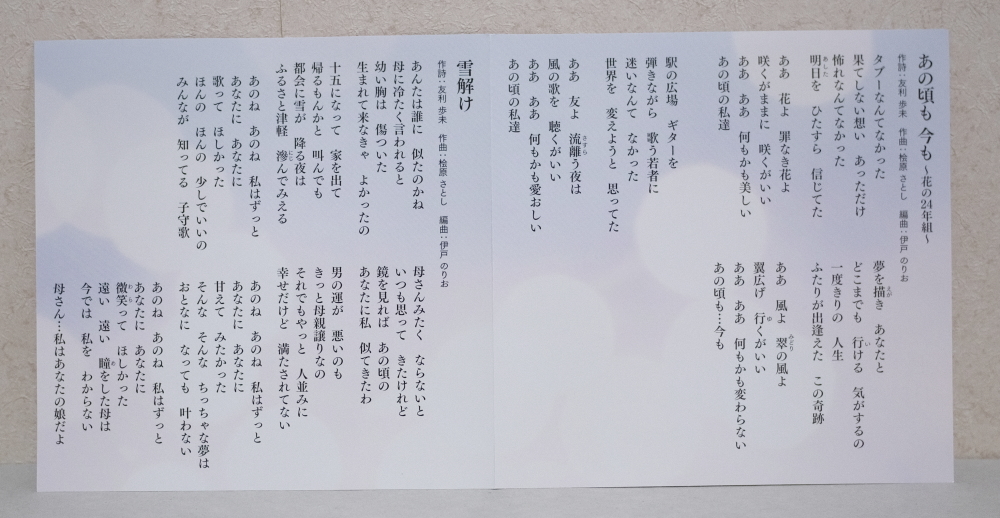 あの頃も 今も ～花の24年組～
作詩：友利 歩未　作曲：桧原 さとし　編曲：伊戸 のりお
タブーなんてなかった
果てしない想い　あっただけ
怖れなんてなかった
明日を　ひたすら　信じてた
あした
ああ　花よ　罪なき花よ
咲くがままに　咲くがいい
ああ　ああ　何もかも美しい
あの頃の私達
駅の広場　ギターを
弾きながら　歌う若者に
迷いなんて　なかった
世界を　変えようと　思ってた
ああ　友よ　流離う夜は
さすら
風の歌を　聴くがいい
ああ　ああ　何もかも愛おしい
あの頃の私達
夢を描き　あなたと
えが
どこまでも　行ける　気がするの
い
一度きりの　人生
ふたりが出逢えた　この奇跡
ああ　風よ　翠の風よ
みどり
翼広げ　行くがいい
ゆ
ああ　ああ　何もかも変わらない
あの頃も…今も
雪解け
作詩：友利 歩未　作曲：桧原 さとし　編曲：伊戸 のりお
あんたは誰に　似たのかね
母に冷たく言われると
幼い胸は　傷ついた
生まれて来なきゃ　よかったの
十五になって　家を出て
帰るもんかと　叫んでも
都会に雪が　降る夜は
ふるさと津軽　滲んでみえる
にじ
あのね　あのね　私はずっと
あなたに　あなたに
歌って　ほしかった
ほんの　ほんの　少しでいいの
みんなが　知ってる　子守歌
母さんみたく　ならないと
いつも思って　きたけれど
鏡を見れば　あの頃の
あなたに私　似てきたわ
男の運が　悪いのも
きっと母親譲りなの
それでもやっと　人並みに
幸せだけど　満たされてない
あのね　あのね　私はずっと
あなたに　あなたに
甘えて　みたかった
そんな　そんな　ちっちゃな夢は
おとなに　なっても　叶わない
あのね　あのね　私はずっと
あなたに　あなたに
微笑って　ほしかった
わら
遠い　遠い　瞳をした母は
め
今では　私を　わからない
母さん…私はあなたの娘だよ